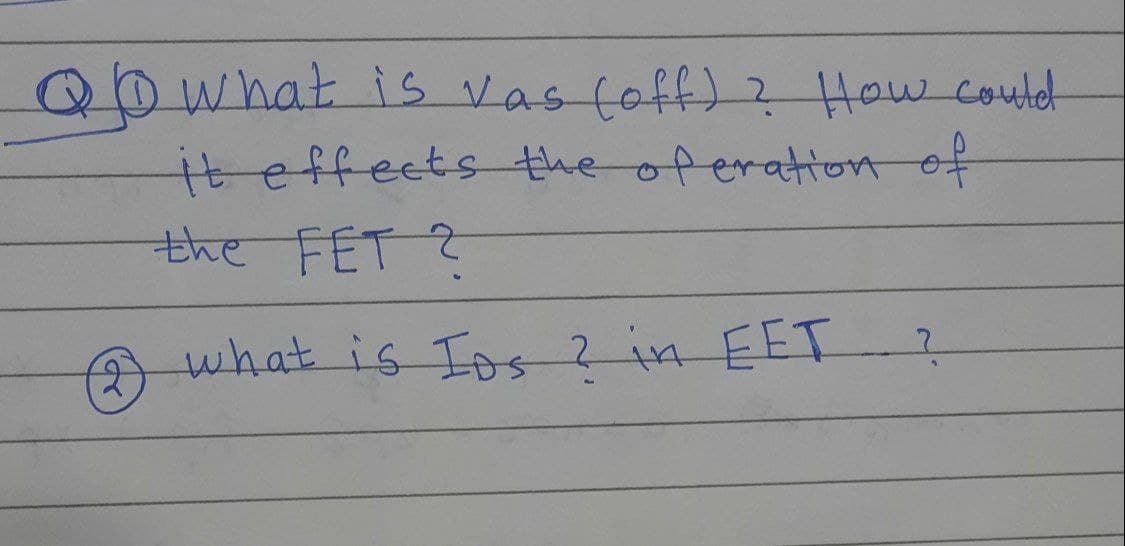 Q ① what is Vas (off) ? How could
it effects the operation of
the FET ?
② what is IDS ? in EET ?